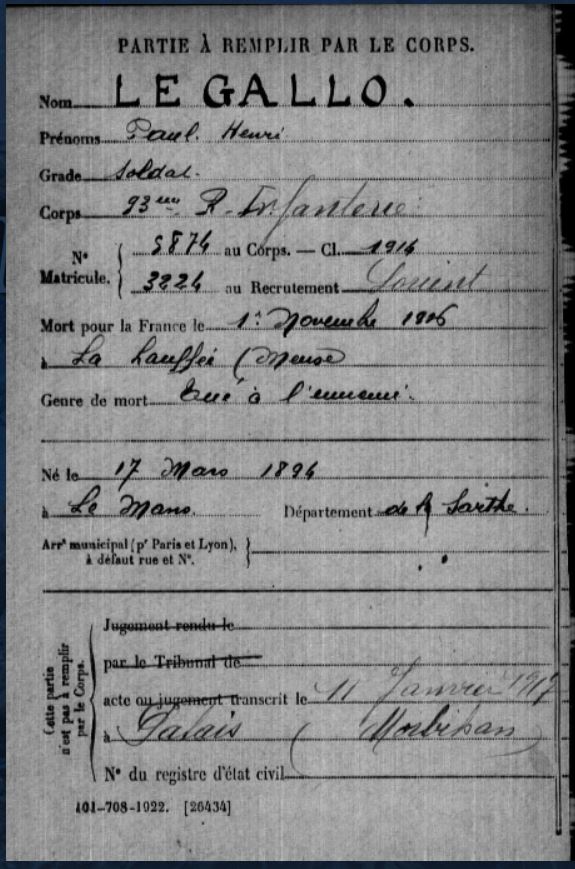 PARTIE À REMPLIR PAR LE CORPS.
Nom LE GALLO.
Prénoms Paul Henri
Grade Soldat.
Corps 93ème R. Infanterie
N° Matricule. { 5874 au Corps. — Cl. 1914
3224 au Recrutement Lorient
Mort pour la France le 1er Novembre 1916
à La Lauffée (Meuse
Genre de mort Tué à l'ennemi.
Né le 17 Mars 1894
à Le Mans. Département de la Sarthe.
Arrt municipal (pr Paris et Lyon),
à défaut rue et N°. }
Cette partie n'est pas à remplir par le Corps.
Jugement rendu le
par le Tribunal de
acte ou jugement transcrit le 11 Janvier 1917
à Palais (Morbihan)
N° du registre d'état civil
101-708-1922. [26434]